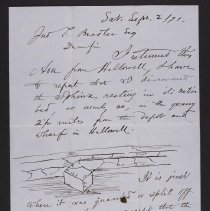 Sat. Sept. 2 / 71.
Jas T. Bradlee Esq
Dear Sir
I returned this
A.M. from Hallowell, & have
to report that I discovered
the Sphinx resting in its native
bed, or nearly so, in the quarry
2½ miles from the depot and
wharf in Hallowell.
It is just
where it was quarried or split off
that the